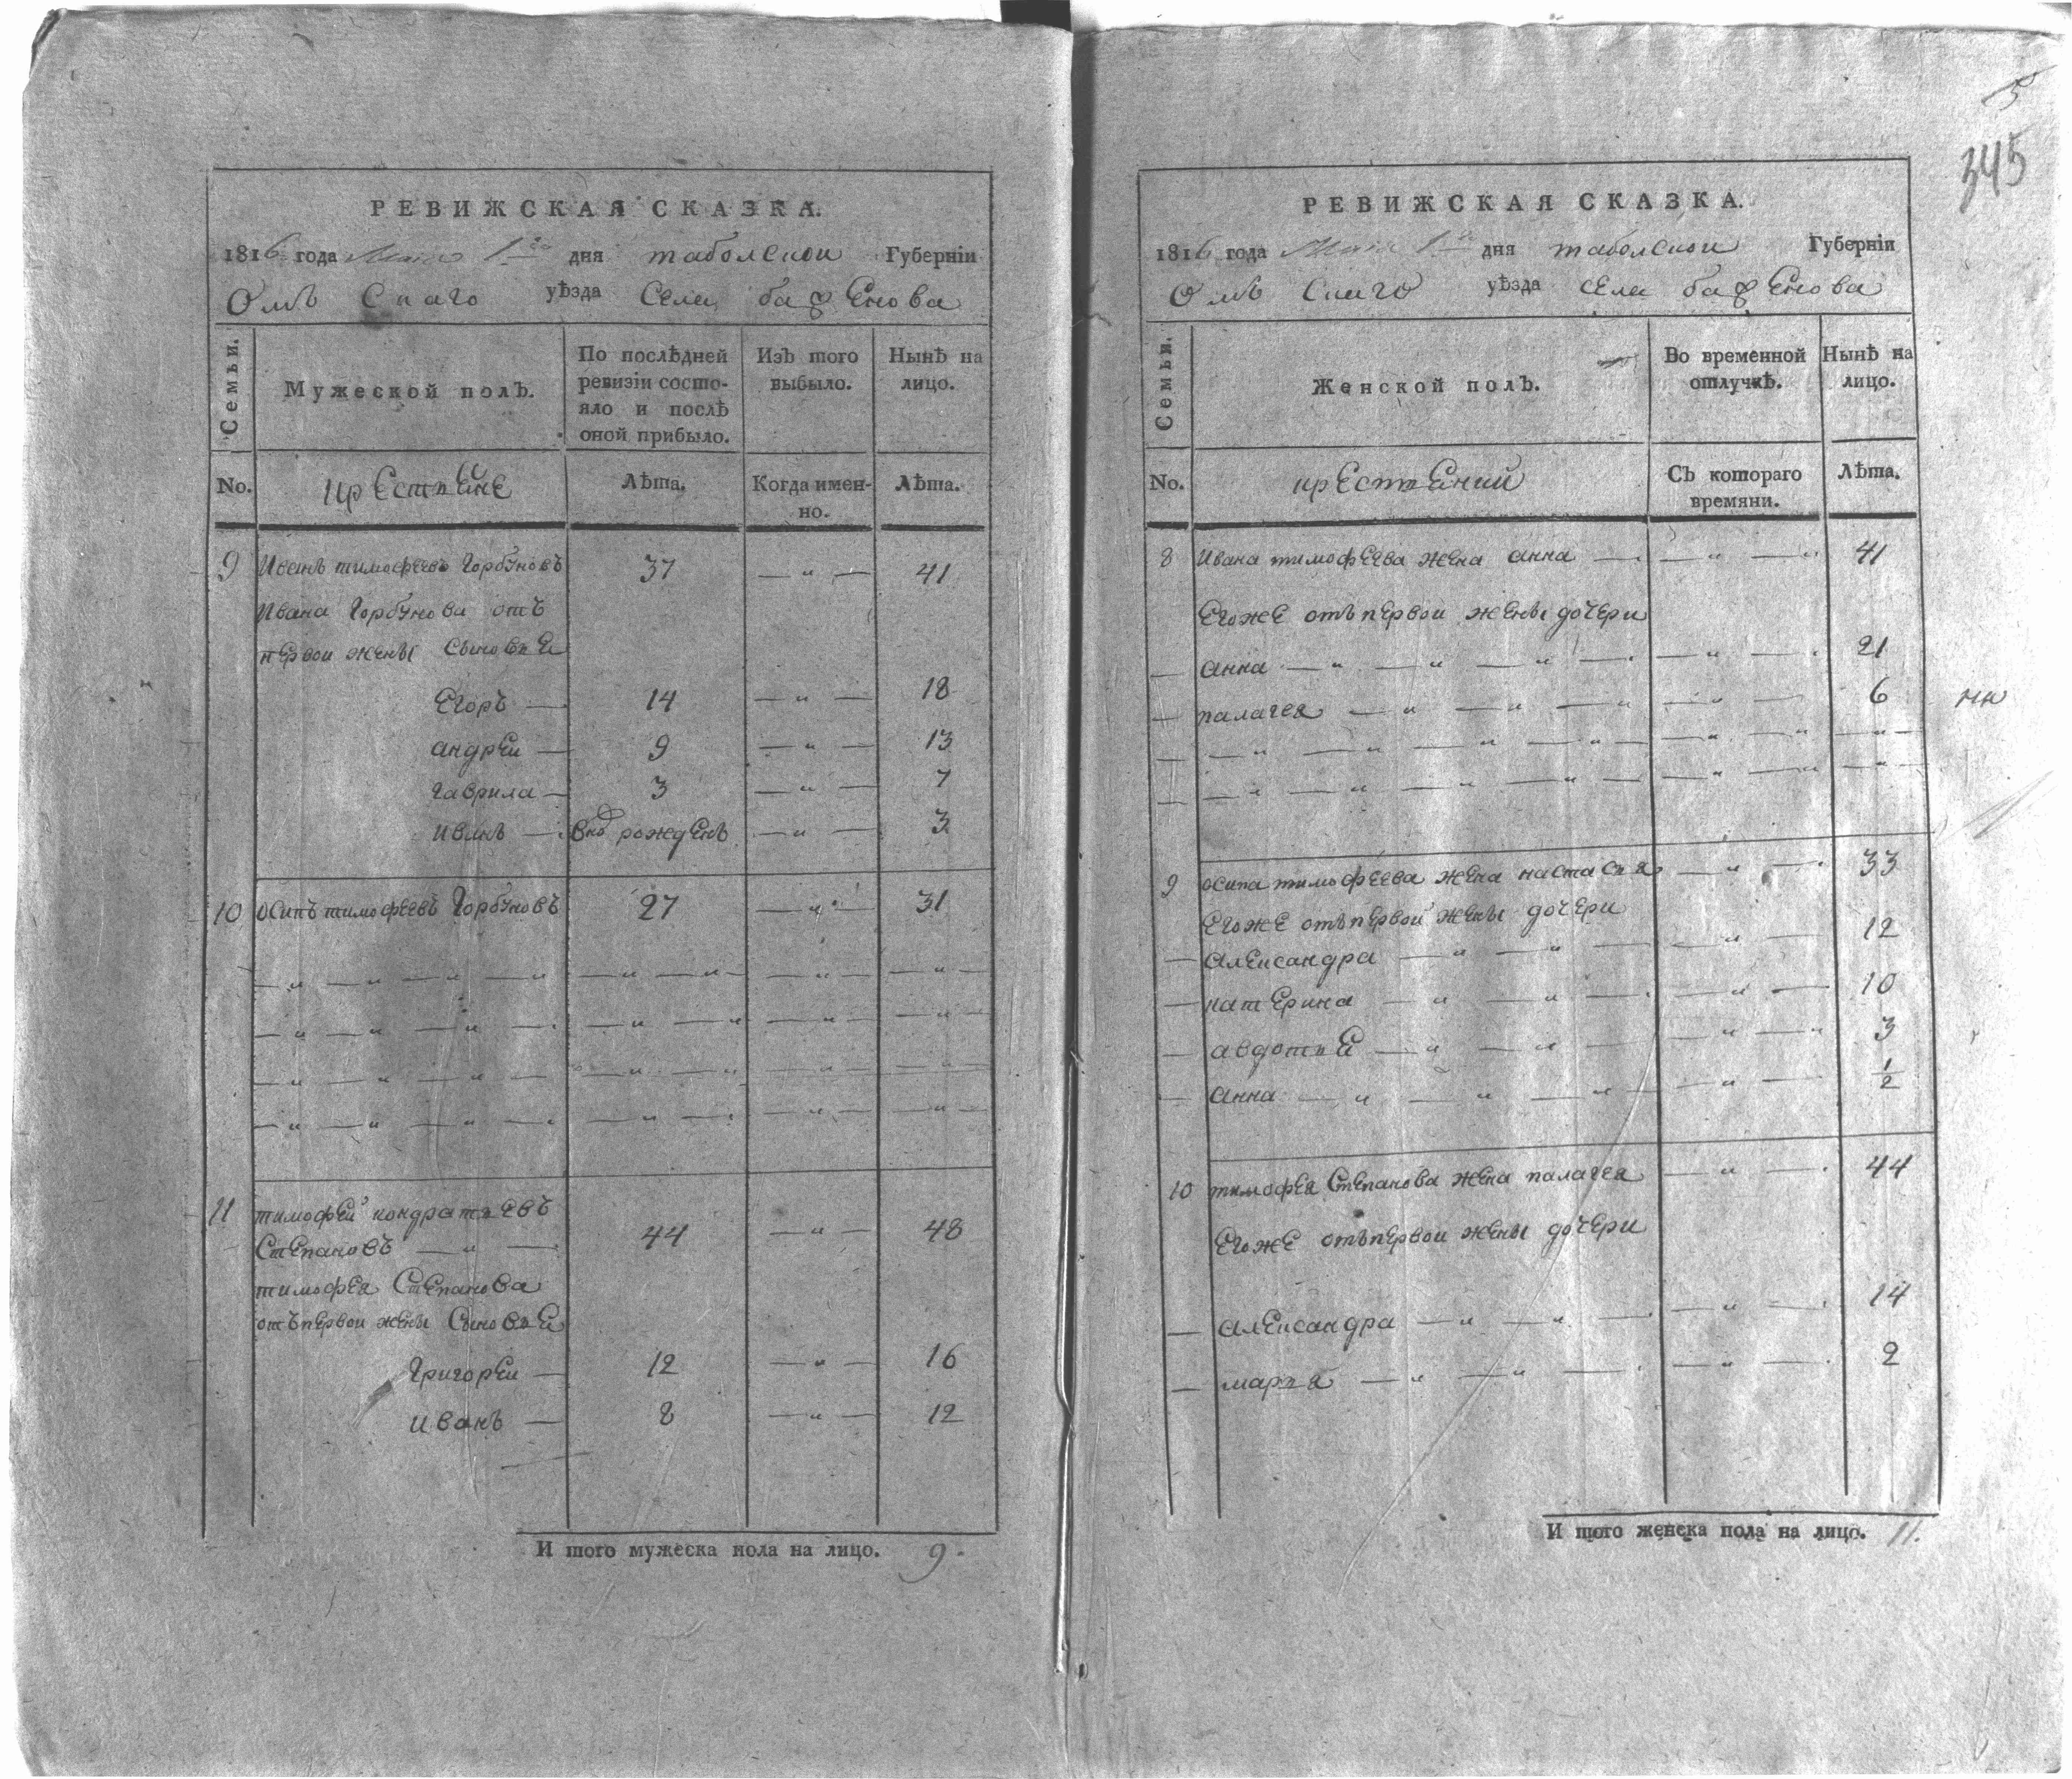 РЕВИЖСКАЯ СКАЗКА.
1816 года Маия 1го дня таболской Губерніи
Омъ Скаго уѣзда Села баженова
Семьи.
Мужеской полъ.
По послѣдней ревизіи состояло и послѣ оной прибыло.
Изъ того выбыло.
Нынѣ на лицо.
No.
крестьене
Лѣта.
Когда имен-но.
Лѣта.
9 Иванъ тимофеевъ Горбуновъ 37 — „ — 41
Ивана Горбунова отъ
первои жены сыновьеи
Егоръ — 14 — „ — 18
андреи — 9 — „ — 13
Гаврила — 3 — „ — 7
иванъ — рожденъ — „ — 3
10 осипъ тимофеевъ Горбуновъ 27 — „ — 31
— „ — „ — „ — „ — „ — „ — „ — — „ —
— „ — „ — „ — — „ — „ — „ — — „ —
— „ — „ — „ — — „ — „ — „ — — „ —
— „ — „ — „ — — „ — — „ — — „ —
11 тимофеи кондратьевъ
Степановъ — „ — 44 — „ — 48
тимофея Степанова
отъ первои жены сыновьеи
Григореи — 12 — „ — 16
иванъ — 8 — „ — 12
И того мужеска пола на лицо. 9.
5
345
РЕВИЖСКАЯ СКАЗКА.
1816 года Маия 1го дня таболской Губерніи
Омъ Скаго уѣзда села баженова
Семьи.
Женской полъ.
Во временной отлучкѣ.
Нынѣ на лицо.
No.
крестьений
Съ котораго времяни.
Лѣта.
8 Ивана тимофеева жена анна — — „ — „ 41
Егоже отъ первои жены дочери
— анна — „ — „ — „ — — „ — 21
— палагея — „ — „ — „ — „ — 6
— — „ — „ — „ — „ — — „ — „ — „ —
— — „ — „ — „ — „ — — „ — „ — „ —
9 осипа тимофеева жена настасья — „ — 33
Егоже отъ первои жены дочери
— александра — „ — „ — — „ — 12
— катерина — „ — „ — — „ — 10
— авдотье — „ — „ — — „ — „ 3
— анна — „ — „ — „ — — „ — 1/2
10 тимофея Степанова жена палагея — „ — 44
Егоже отъ первои жены дочери
— александра — „ — „ — — „ — 14
— марья — „ — „ — — „ — 2
И того женска пола на лицо. 11.